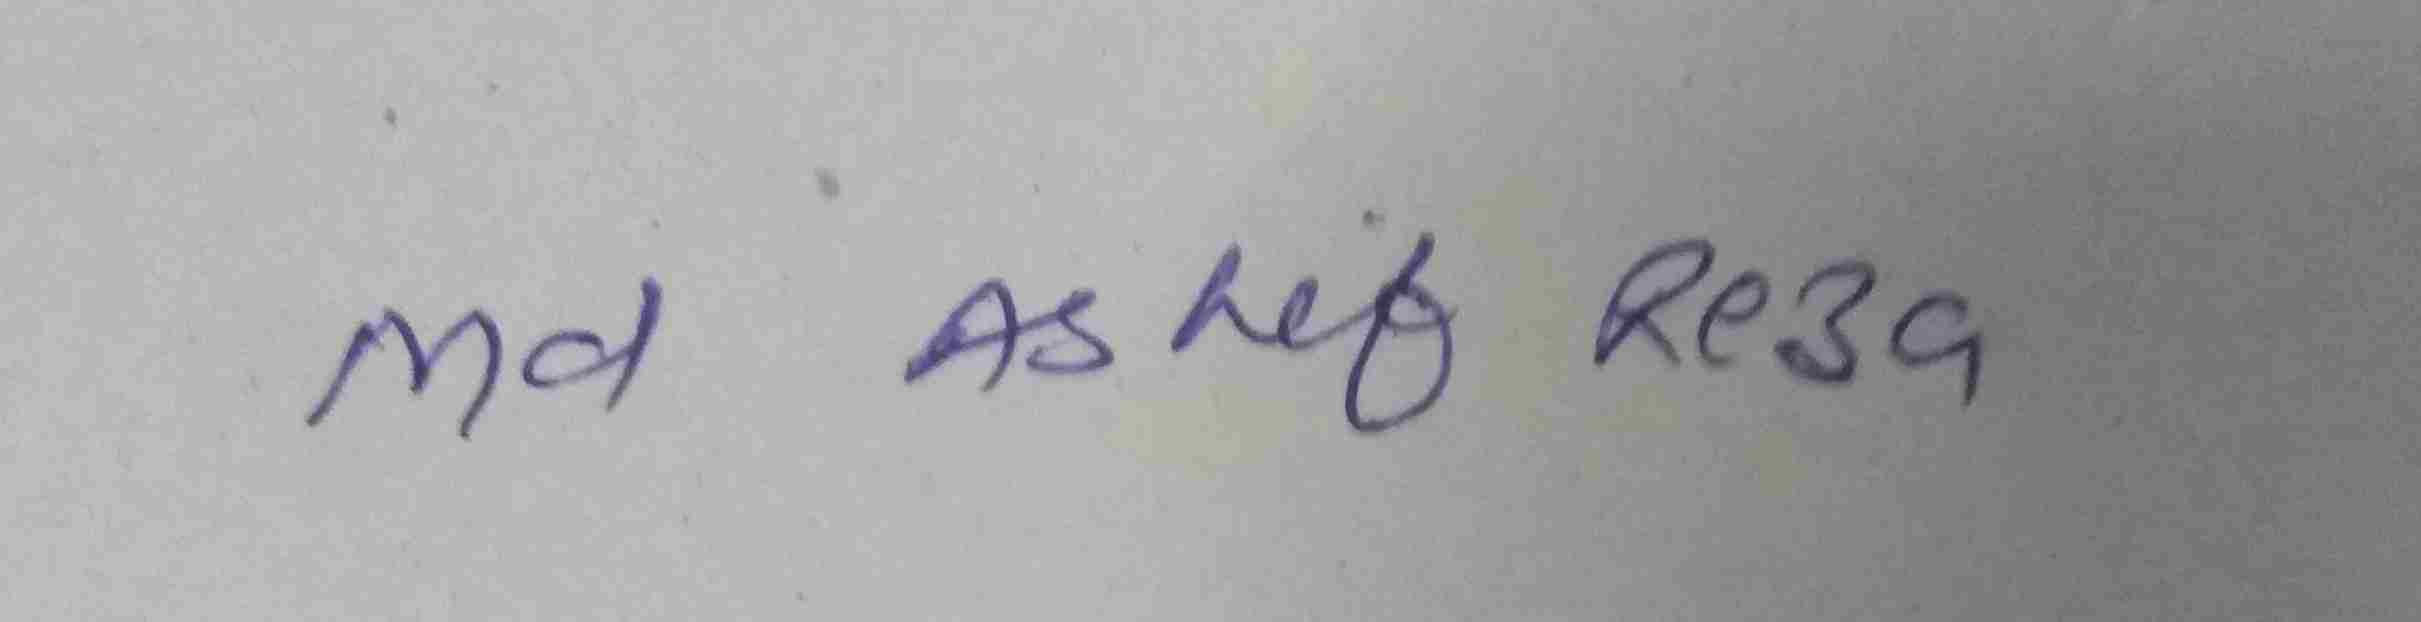 Md Ashif Reza